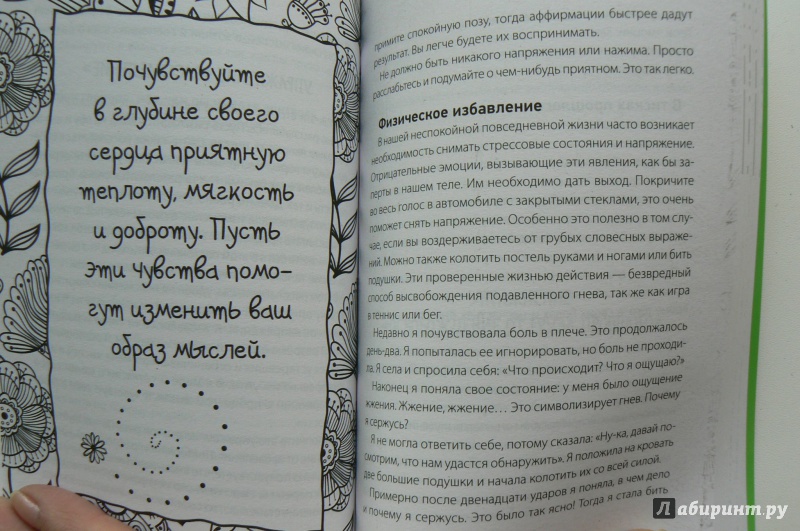 Почувствуйте
в глубине своего
сердца приятную
теплоту, мягкость
и доброту. Пусть
эти чувства помо-
гут изменить ваш
образ мыслей.
примите спокойную позу, тогда аффирмации быстрее дадут
результат. Вы легче будете их воспринимать.
Не должно быть никакого напряжения или нажима. Просто
расслабьтесь и подумайте о чем-нибудь приятном. Это так легко.
Физическое избавление
В нашей неспокойной повседневной жизни часто возникает
необходимость снимать стрессовые состояния и напряжение.
Отрицательные эмоции, вызывающие эти явления, как бы за-
перты в нашем теле. Им необходимо дать выход. Покричите
во весь голос в автомобиле с закрытыми стеклами, это очень
поможет снять напряжение. Особенно это полезно в том слу-
чае, если вы воздерживаетесь от грубых словесных выраже-
ний. Можно также колотить постель руками и ногами или бить
подушки. Эти проверенные жизнью действия — безвредный
способ высвобождения подавленного гнева, так же как игра
в теннис или бег.
Недавно я почувствовала боль в плече. Это продолжалось
день-два. Я попыталась ее игнорировать, но боль не проходи-
ла. Я села и спросила себя: «Что происходит? Что я ощущаю?»
Наконец я поняла свое состояние: у меня было ощущение
жжения. Жжение, жжение... Это символизирует гнев. Почему
я сержусь?
Я не могла ответить себе, потому сказала: «Ну-ка, давай по-
смотрим, что нам удастся обнаружить». Я положила на кровать
две большие подушки и начала колотить их со всей силой.
Примерно после двенадцати ударов я поняла, в чем дело
и почему я сержусь. Это было так ясно! Тогда я стала бить
Лабиринт.ру